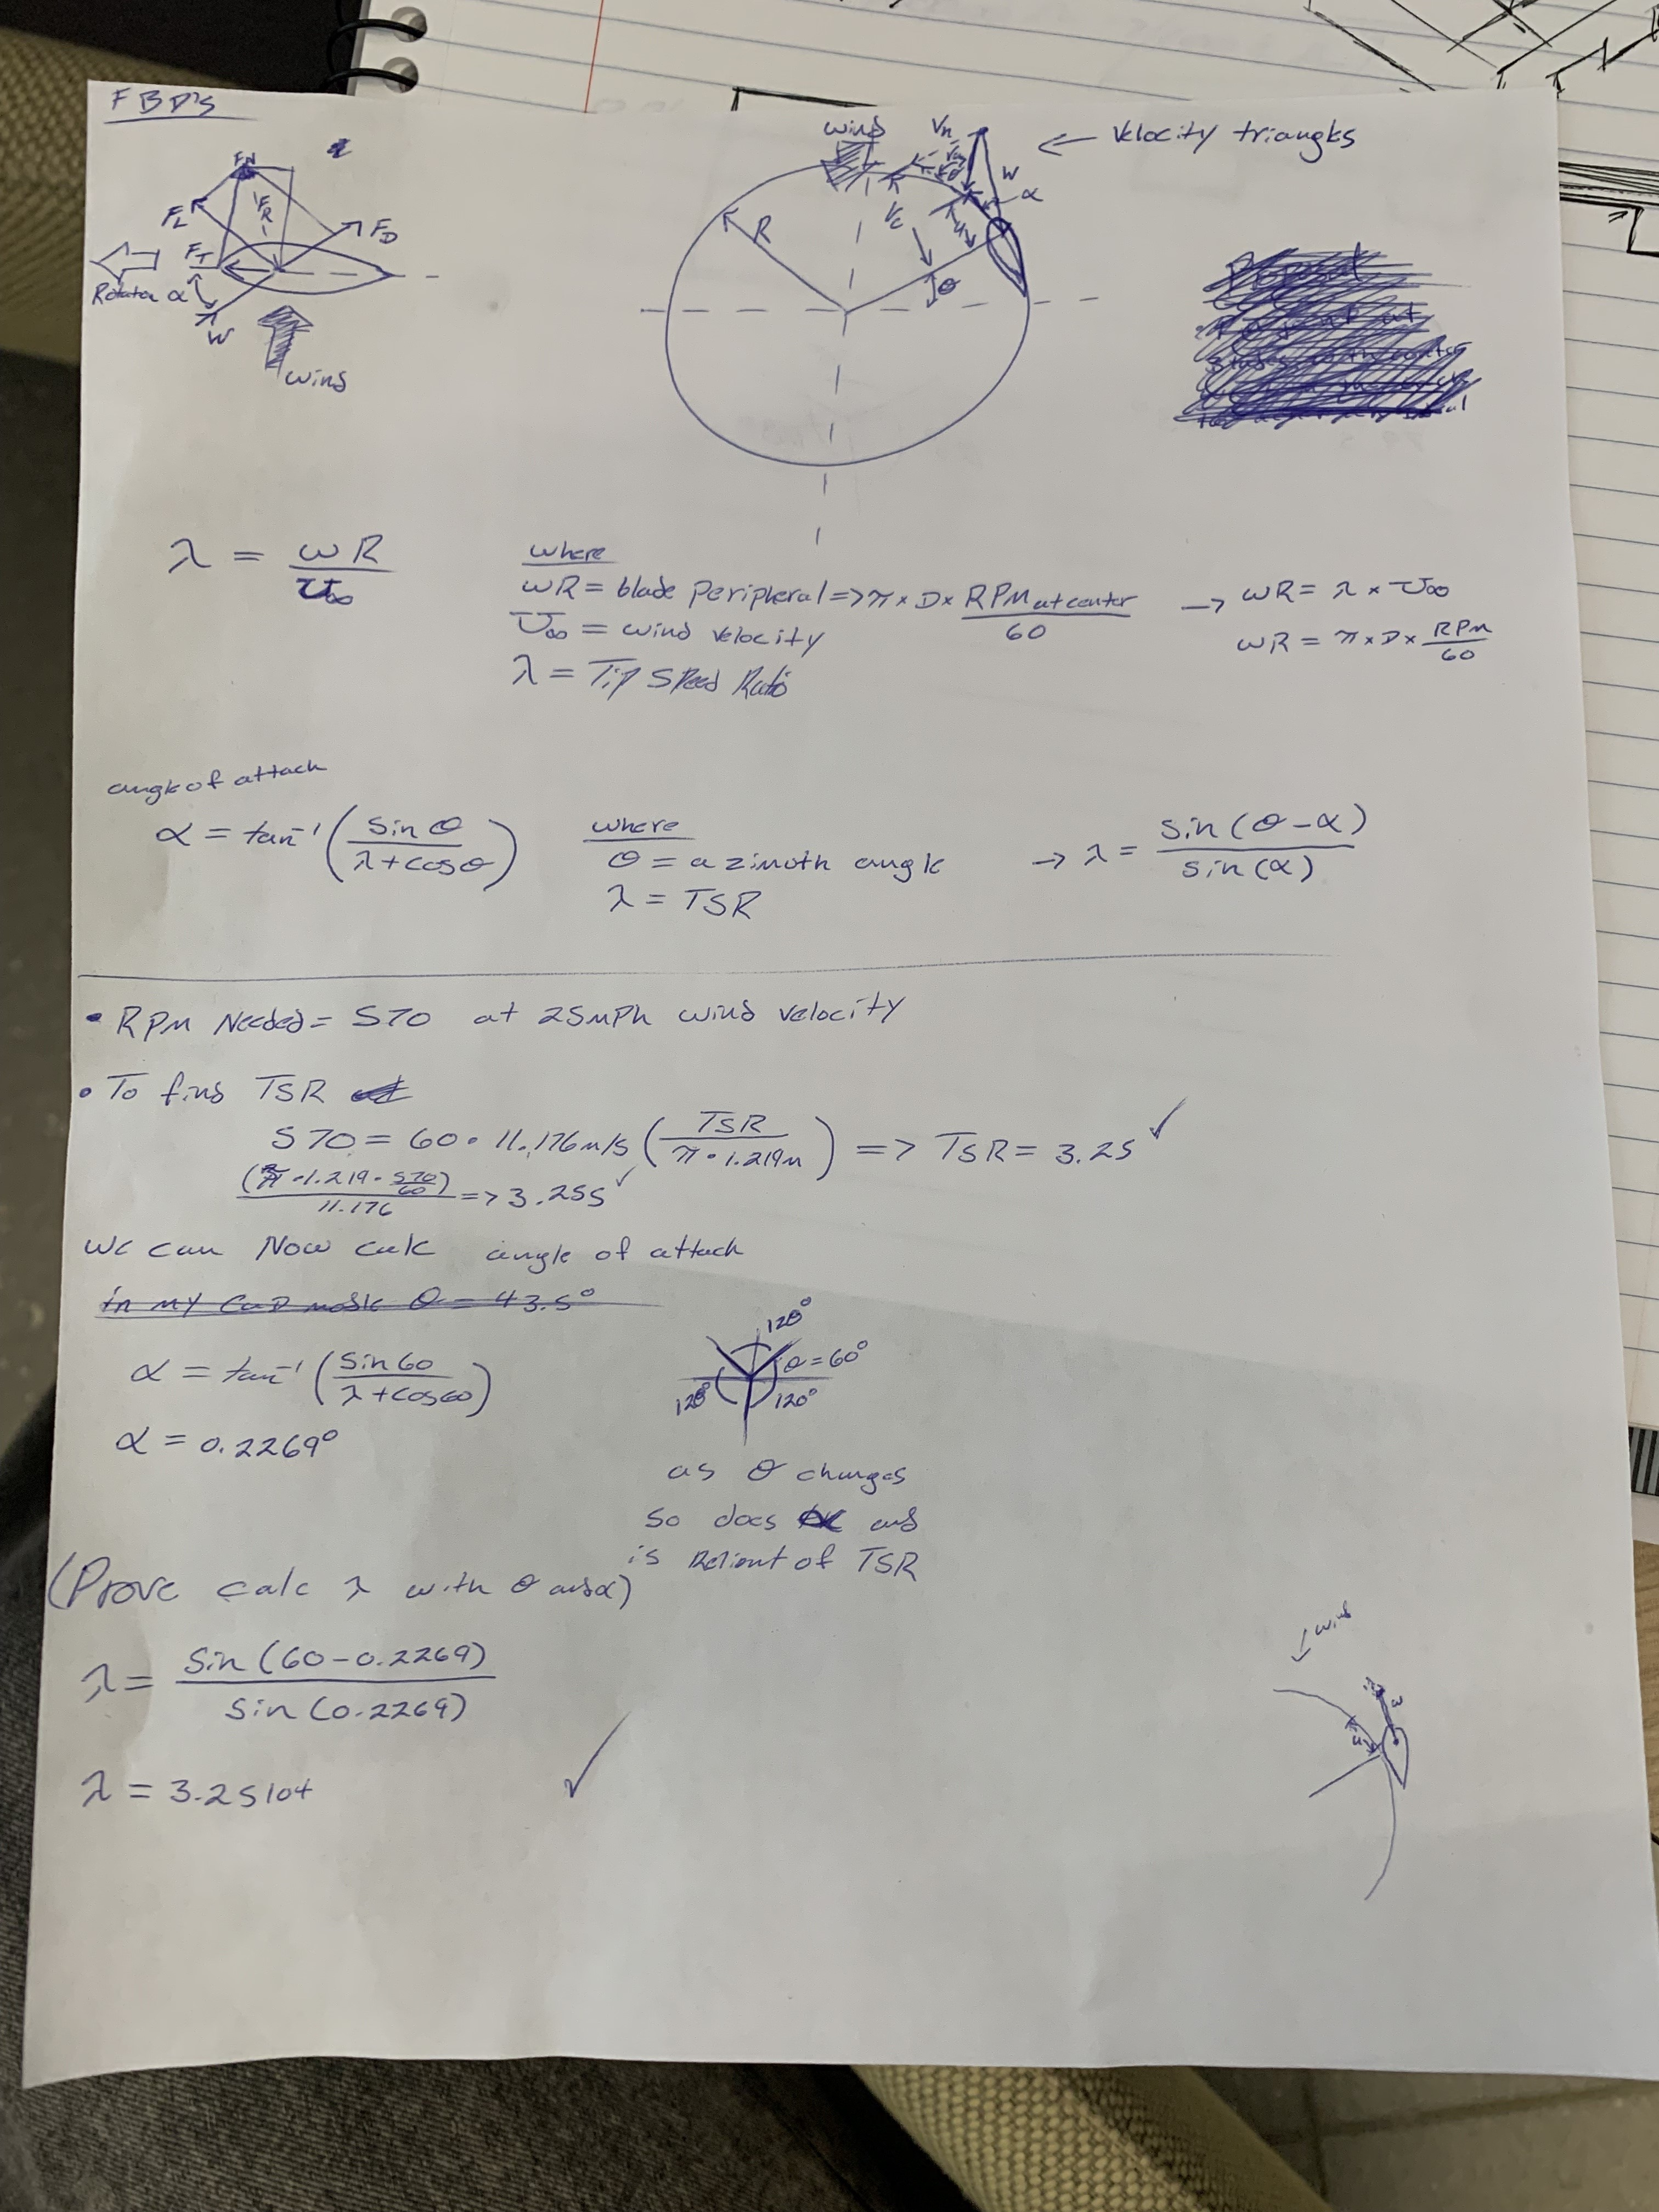 FBD's
wind
Velocity triangles
Vn
W
α
Vc
R
θ
FN
FR
FL
FD
FT
Rotation α
W
wind
λ = ωR / U∞
where
ωR = blade Peripheral => π × D × RPM at center / 60 → ωR = λ × U∞
U∞ = wind velocity
ωR = π × D × RPM / 60
λ = Tip Speed Ratio
angle of attack
α = tan⁻¹ ( sin θ / λ + cos θ )
where
θ = azimuth angle
λ = TSR
→ λ = sin (θ - α) / sin (α)
• RPM Needed = 570 at 25mph wind velocity
• To find TSR
570 = 60 • 11.176 m/s ( TSR / π • 1.219m ) => TSR = 3.25 ✓
(π • 1.219 • 570/60) / 11.176 => 3.255 ✓
we can Now calc angle of attack
in my CAD model θ = 43.5°
α = tan⁻¹ ( sin 60 / λ + cos 60 )
α = 0.2269°
120°
θ = 60°
120°
120°
as θ changes
so does α and
is Relient of TSR
(Prove calc λ with θ and α)
λ = sin (60 - 0.2269) / sin (0.2269)
λ = 3.25104 ✓
wind